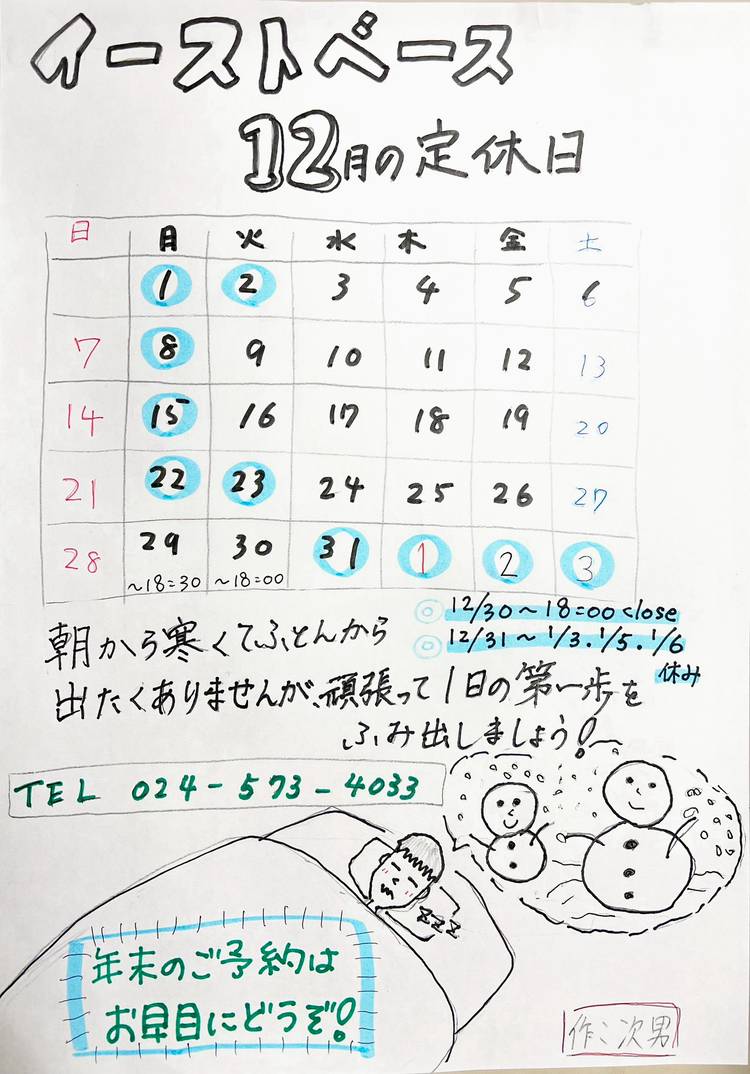 イーストベース
12月の定休日
日 月 火 水 木 金 土
1 2 3 4 5 6
7 8 9 10 11 12 13
14 15 16 17 18 19 20
21 22 23 24 25 26 27
28 29 30 31 1 2 3
～18:30 ～18:00
◎ 12/30～18:00 close
◎ 12/31～1/3.1/5.1/6
休み
朝から寒くてふとんから
出たくありませんが、頑張って1日の第一歩を
ふみ出しましょう!
TEL 024-573-4033
zzz
年末のご予約は
お早目にどうぞ!
作:次男